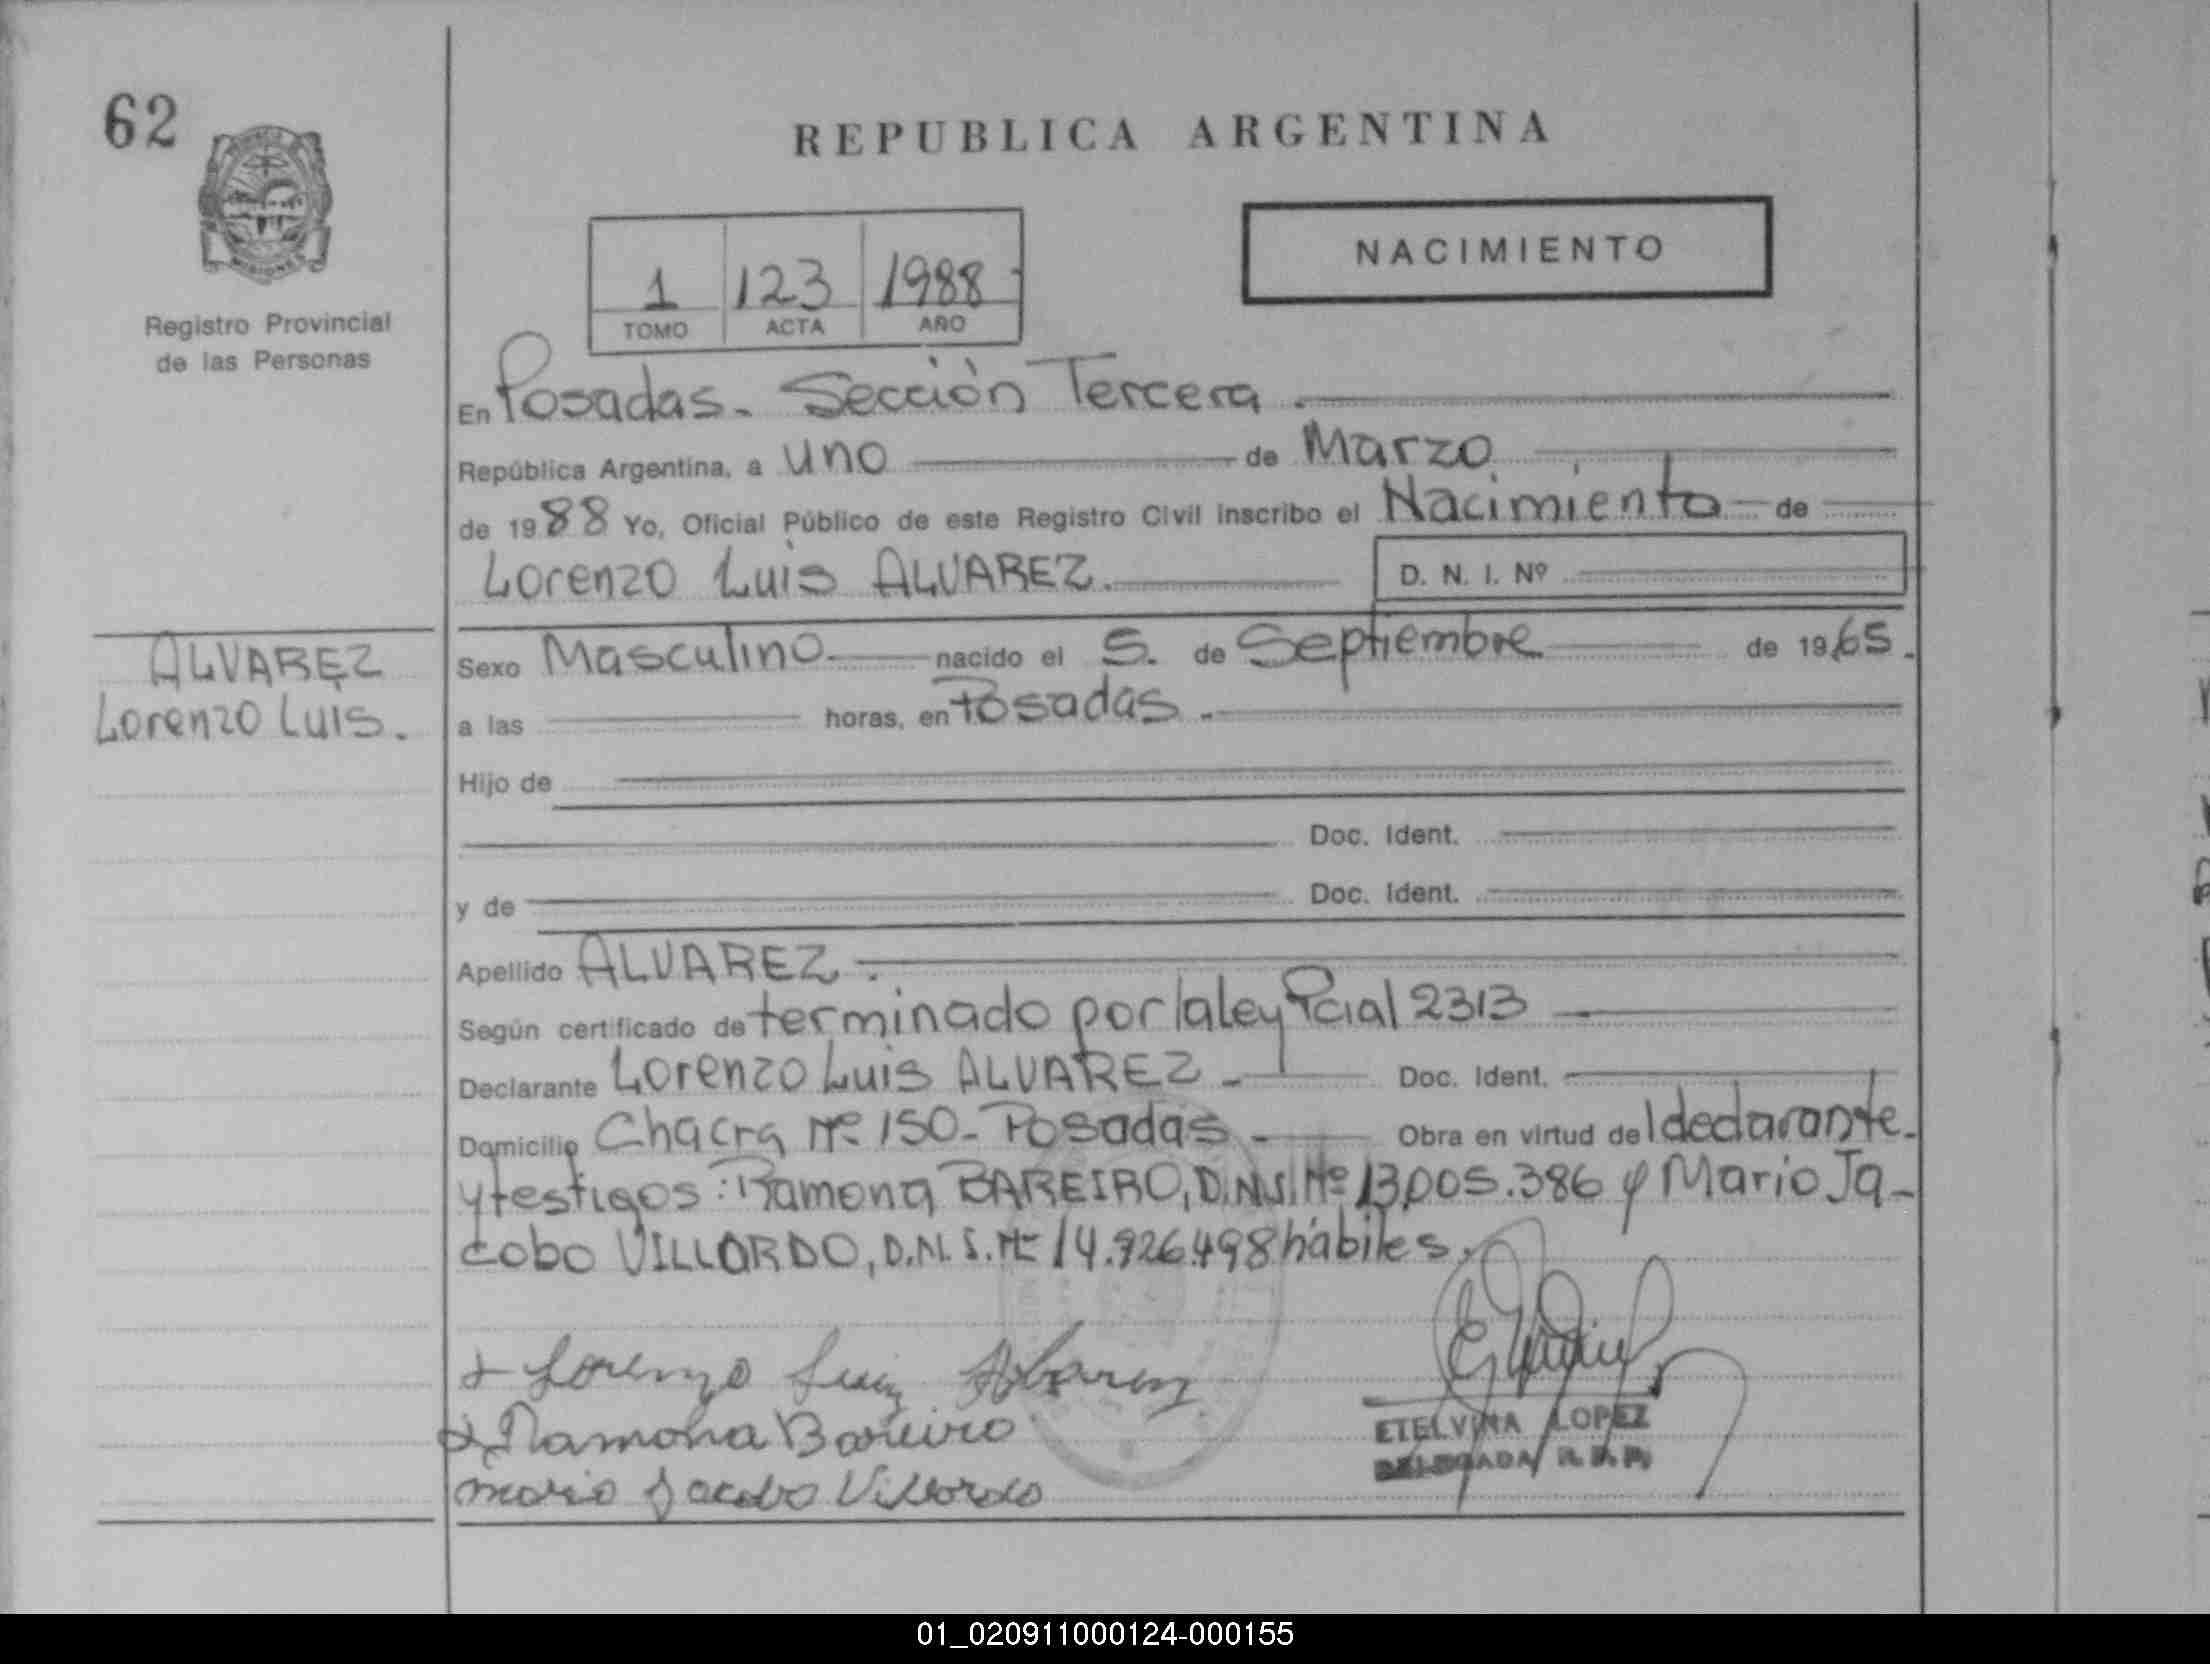 62
REPUBLICA ARGENTINA
MISIONES
Registro Provincial
de las Personas
NACIMIENTO
1 123 1988
TOMO ACTA AÑO
En Posadas. Sección Tercera.
República Argentina, a uno de Marzo
de 1988 Yo, Oficial Público de este Registro Civil inscribo el Nacimiento de
Lorenzo Luis ALVAREZ. D. N. I. Nº
ALVAREZ
Lorenzo Luis.
Sexo Masculino nacido el 5. de Septiembre de 1965.
a las horas, en Posadas.
Hijo de
Doc. Ident.
y de Doc. Ident.
Apellido ALVAREZ.
Según certificado determinado por la ley Pcial 2313
Declarante Lorenzo Luis ALVAREZ Doc. Ident.
Domicilio Chacra Nº 150 - Posadas Obra en virtud del declarante
y testigos: Ramona BAREIRO, D.N.I. Nº 13.005.386 y Mario Ja-
cobo VILLORDO, D.N.I. Nº 14.926.498 hábiles.
Lorenzo Luiz Albarez
Ramona Bareiro
Mario Jacobo Villordo
ETELVINA LOPEZ
DELEGADA R.P.P.
01_020911000124-000155